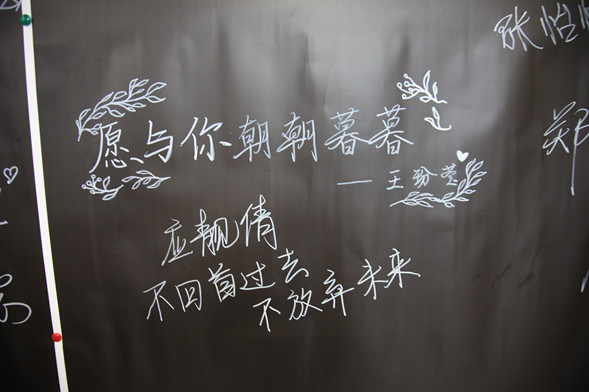 张怡
愿与你朝朝暮暮
——王玢莹
郑
应靓倩
不回首过去
不放弃未来